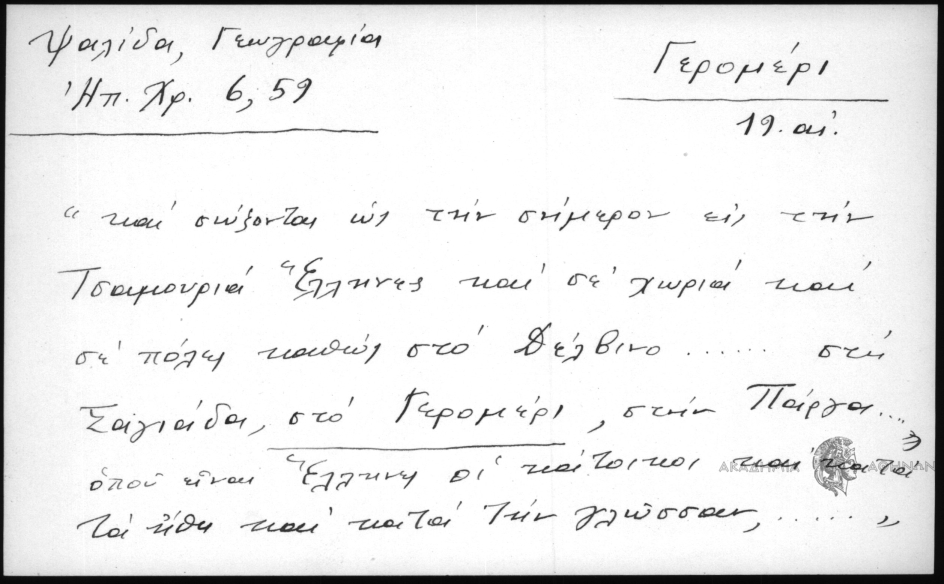 Ψαλίδα, Γεωγραφία
Ἠπ. Χρ. 6, 59
Γερομέρι
19. αἰ.
"καί σώζονται ὡς τήν σήμερον εἰς τήν
Τσαμουριά Ἕλληνες καί σέ χωριά καί
σέ πόλες καθώς στό Δέλβινο ...... στή
Σαγιάδα, στό Γερομέρι, στήν Πάργα...,
ὁποῦ εἶναι Ἕλληνες οἱ κάτοικοι κατά
τά ἤθη καί κατά τήν γλῶσσαν, ......"
ΑΚΑΔΗΜΙΑ ΑΘΗΝΩΝ